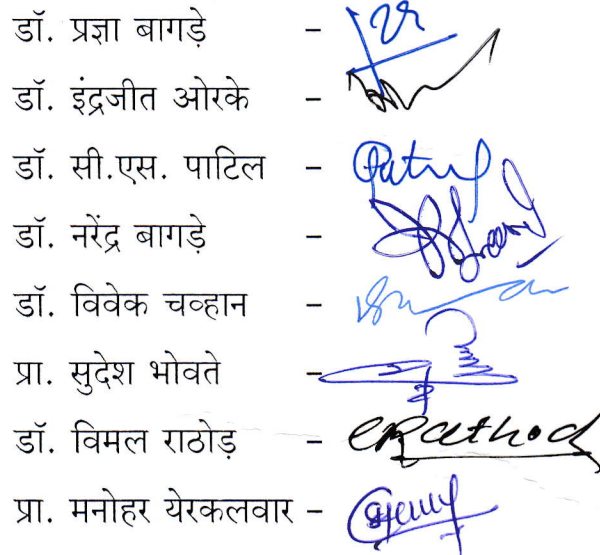 डॉ. प्रज्ञा बागड़े –
डॉ. इंद्रजीत ओरके –
डॉ. सी.एस. पाटिल –
डॉ. नरेंद्र बागड़े –
डॉ. विवेक चव्हान –
प्रा. सुदेश भोवते –
डॉ. विमल राठोड़ – Rathod
प्रा. मनोहर येरकलवार –